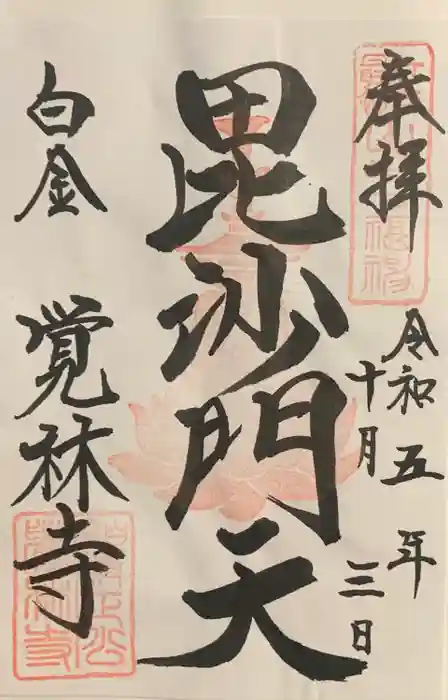 奉拝
令和五年
十月三日
毘沙門天
白金 覚林寺